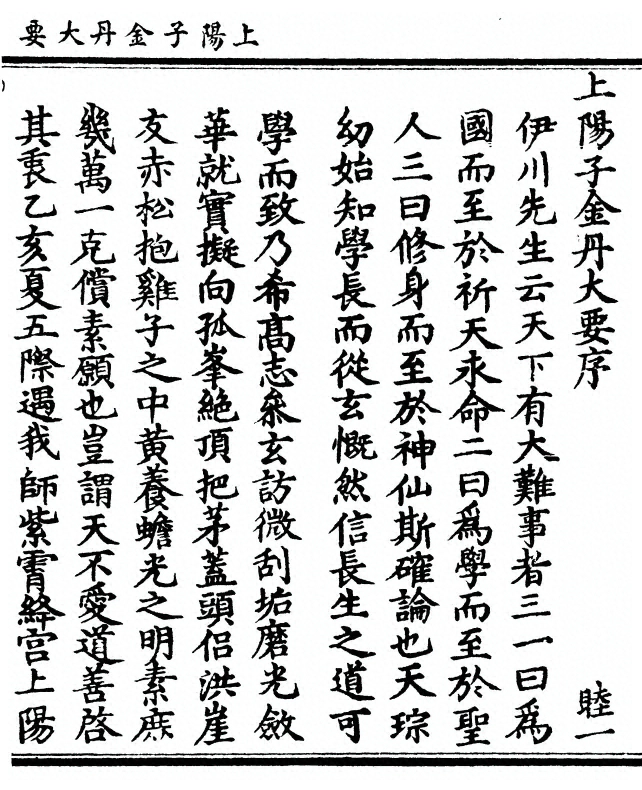 上陽子金丹大要
上陽子金丹大要序 睦一
伊川先生云天下有大難事者三一曰為
國而至於祈天永命二曰為學而至於聖
人三曰修身而至於神仙斯確論也天琮
幼始知學長而從玄慨然信長生之道可
學而致乃希髙志叅玄訪微刮垢磨光斂
華就實擬向孤峯絶頂把茅蓋頭侣洪崖
友赤松抱雞子之中黄養蟾光之明素庶
幾萬一克償素願也豈謂天不愛道善啓
其衷乙亥夏五際遇我師紫霄絳宫上陽